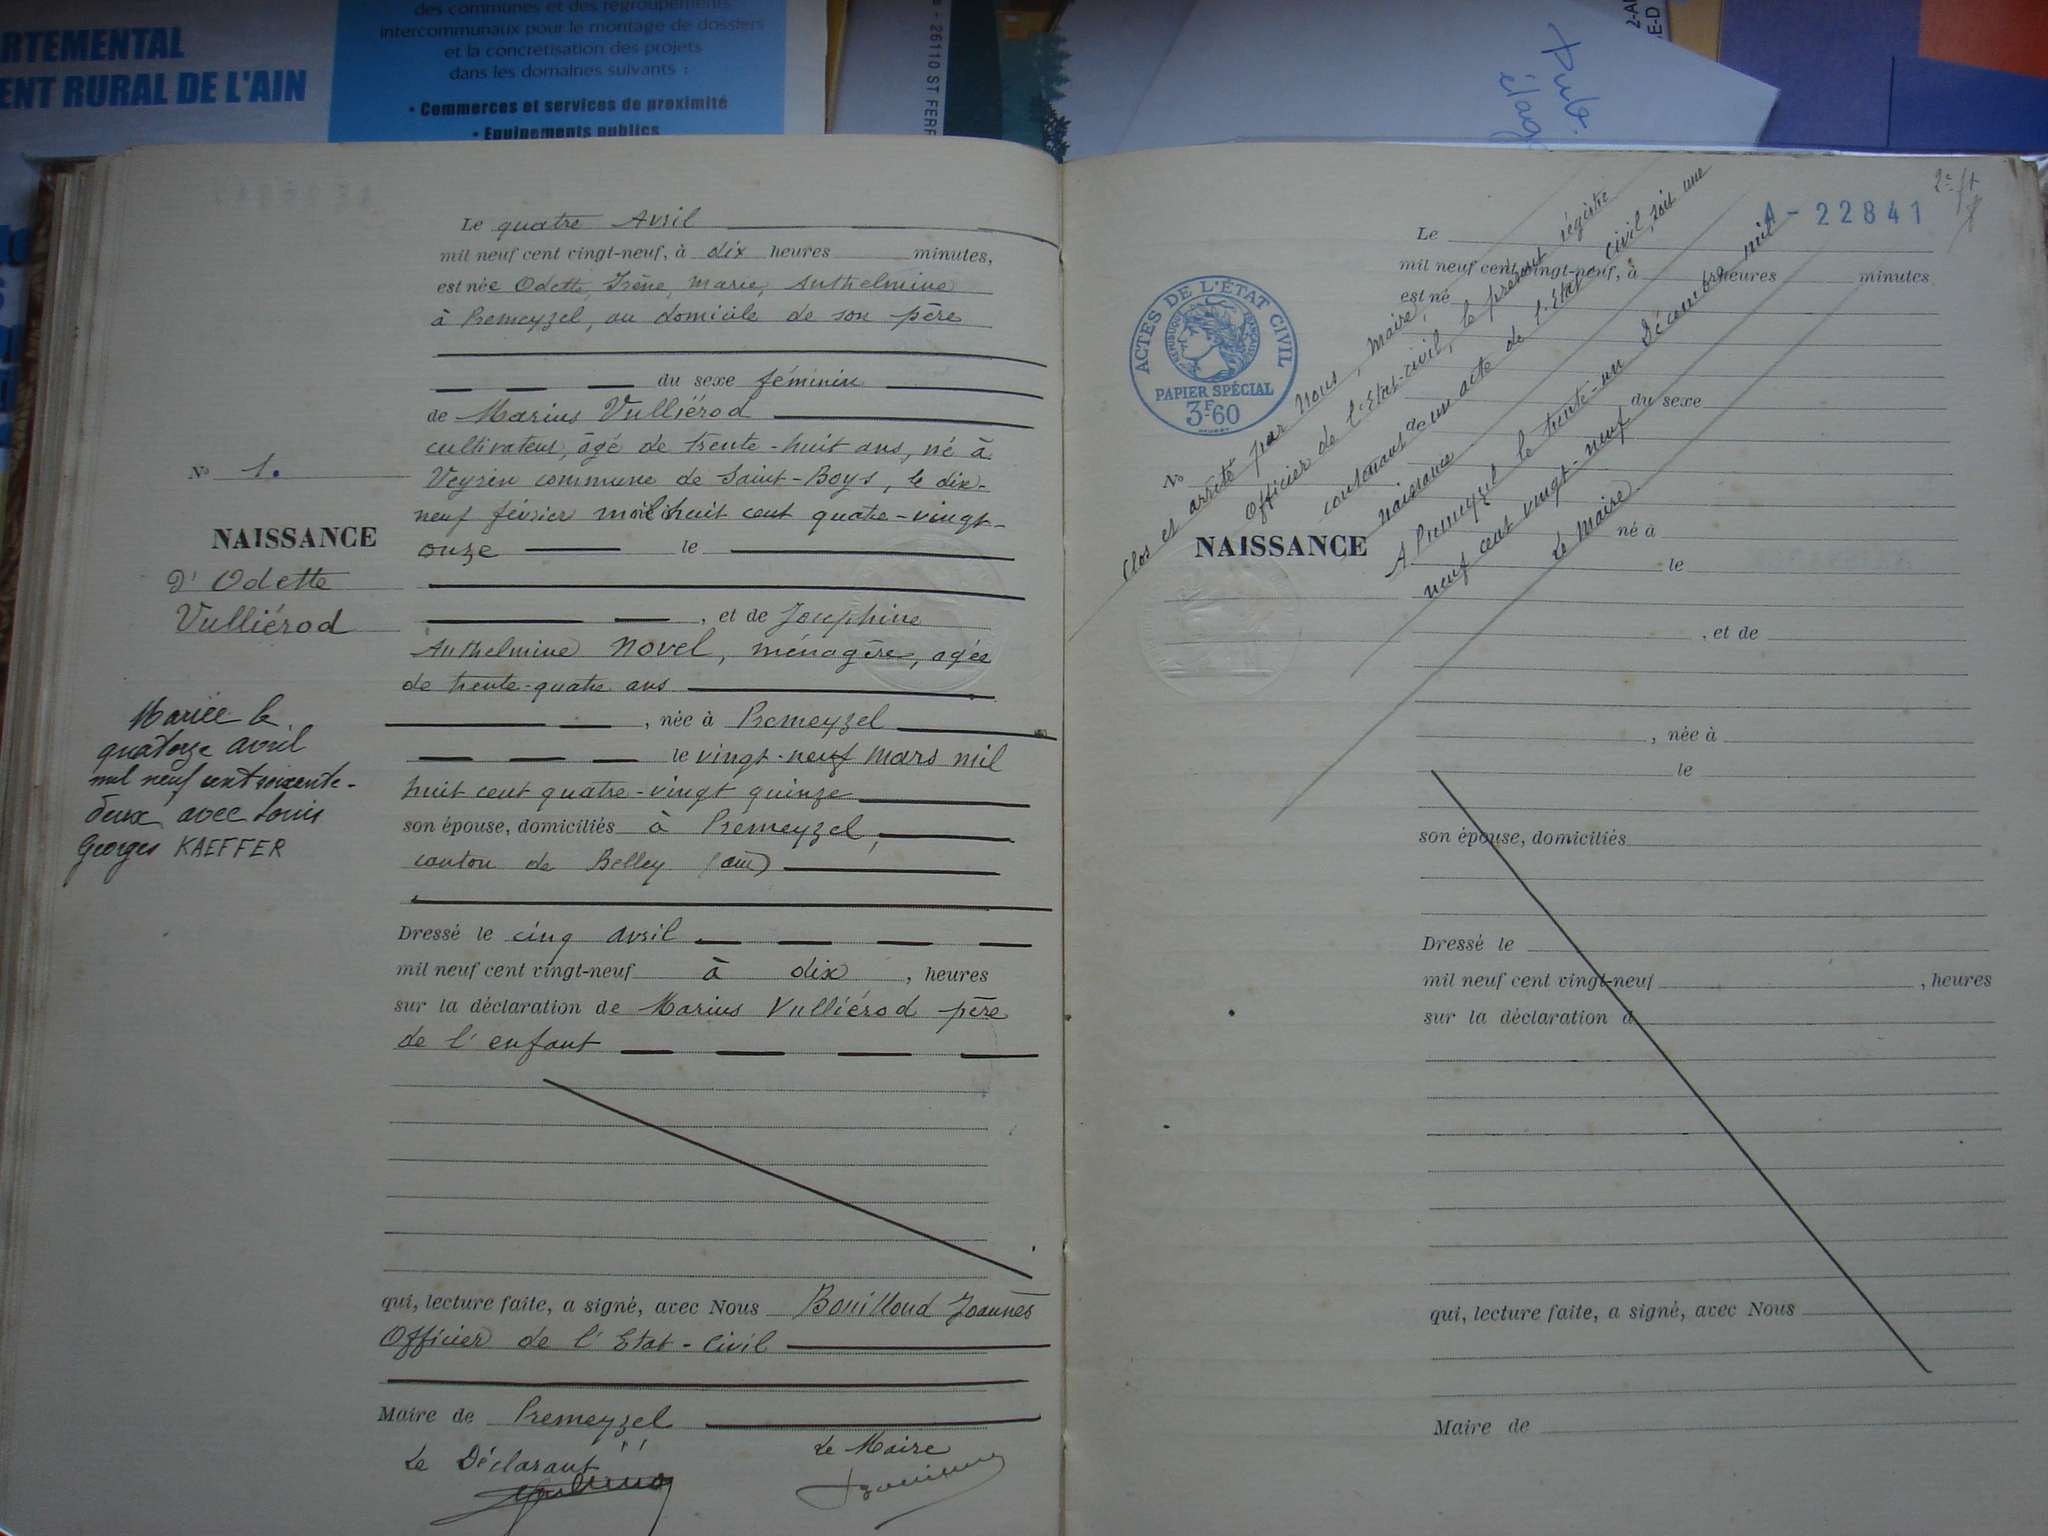 RTEMENTAL
ENT RURAL DE L'AIN
des communes et des regroupements
intercommunaux pour le montage de dossiers
et la concrétisation des projets
dans les domaines suivants :
• Commerces et services de proximité
• Equipements publics
- 26110 ST FERR
Pub.
Le quatre Avril
mil neuf cent vingt-neuf, à dix heures minutes,
est née Odette, Irène, Marie, Anthelmine
à Premeyzel, au domicile de son père
du sexe féminin
de Marius Vulliérod
cultivateur, âgé de trente-huit ans, né à
Veyrin commune de Saint-Boys, le dix-
neuf février mil huit cent quatre-vingt-
onze le
, et de Josephine
Anthelmine Novel, ménagère, agée
de trente-quatre ans
, née à Premeyzel
le vingt-neuf mars mil
huit cent quatre-vingt quinze
son épouse, domiciliés à Prémeyzel,
canton de Belley (ain)
Dressé le cinq Avril
mil neuf cent vingt-neuf à dix , heures
sur la déclaration de Marius Vulliérod père
de l'enfant
qui, lecture faite, a signé, avec Nous Bouilloud Joannès
Officier de l'Etat-Civil
Maire de Premeyzel
Le Déclarant
Le Maire
No 1.
NAISSANCE
D' Odette
Vulliérod
Mariée le
quatorze avril
mil neuf cent soixante-
deux avec Louis
Georges KAEFFER
A-22841
ACTES DE L'ÉTAT CIVIL
RÉPUBLIQUE FRANÇAISE
PAPIER SPÉCIAL
3F60
Clos et arrêté par Nous, Maire,
Officier de l'Etat-civil, le présent régistre
contenant un acte de l'Etat civil, soit une
naissance
A Premeyzel le trente-un Décembre mil
neuf cent vingt-neuf
Le Maire
Le
mil neuf cent vingt-neuf, à heures minutes
est né
du sexe
de
No
NAISSANCE
né à
le
, et de
, née à
le
son épouse, domiciliés
Dressé le
mil neuf cent vingt-neuf , heures
sur la déclaration d
qui, lecture faite, a signé, avec Nous
Maire de